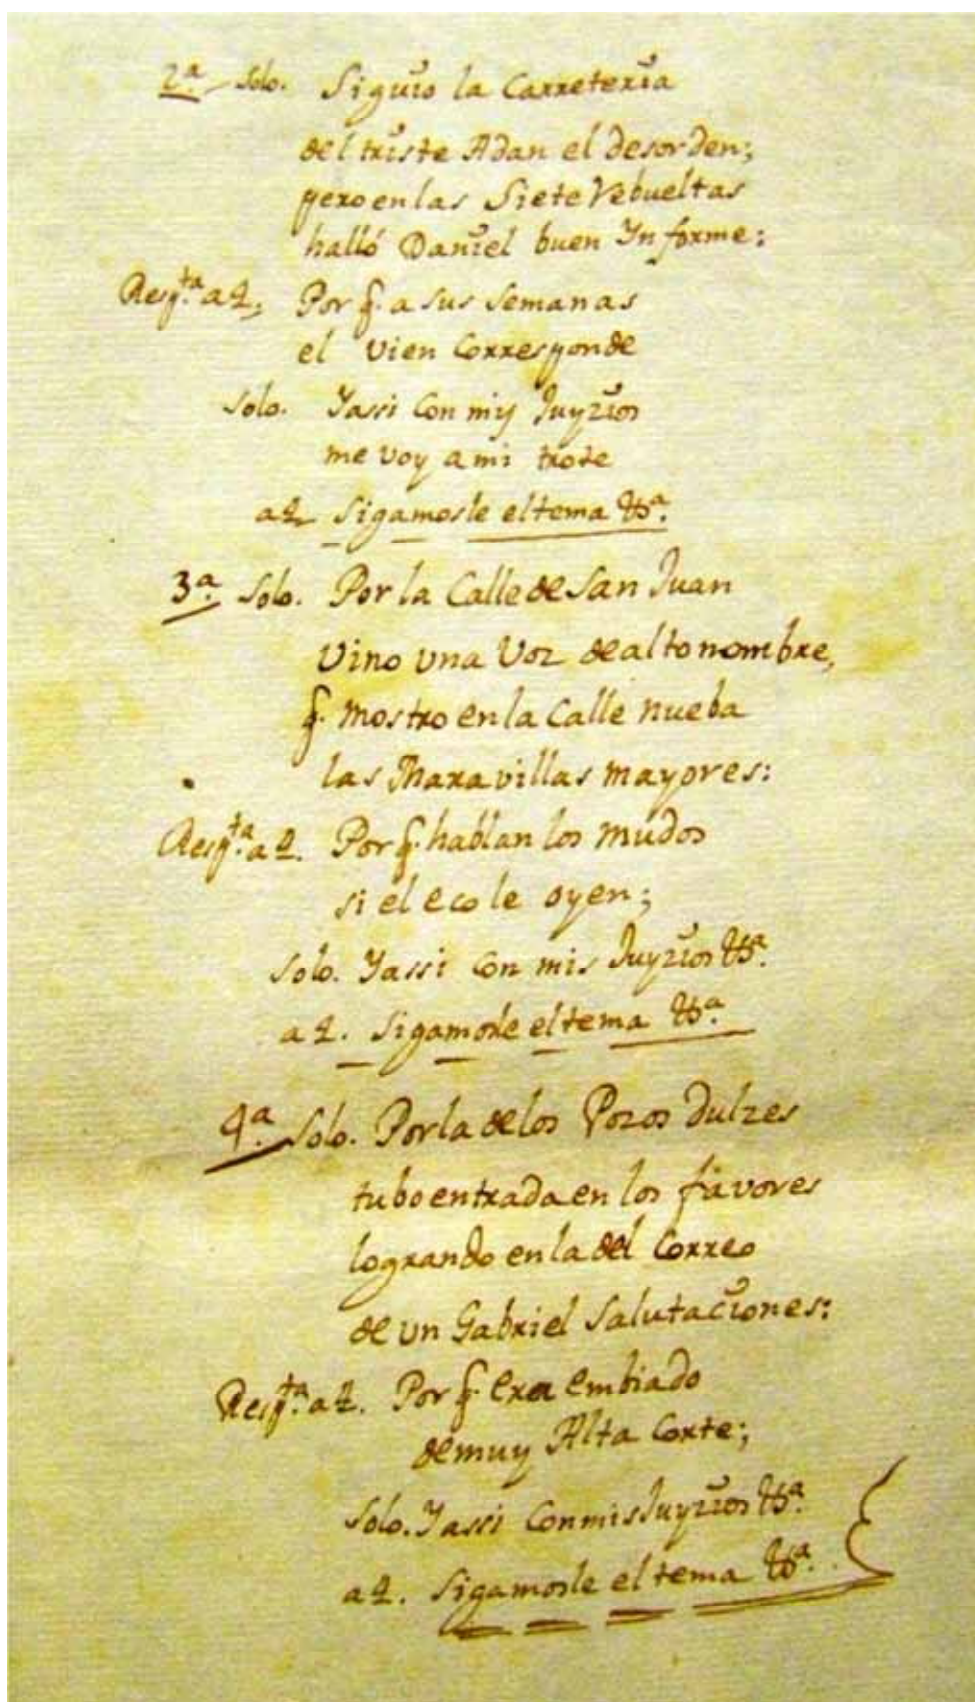 2ª Solo. Siguio la Carreteria
del triste Adan el desorden;
pero en las Siete Rebueltas
halló Daniel buen Ynforme:
Resp.ta a 2. Por q. a sus semanas
el vien Corresponde
Solo. Yassi Con mis Juyzios
me voy a mi trote
a 2. Sigamosle el tema &.ª
3ª Solo. Por la Calle de San Juan
Vino una Voz de alto nombre,
q. mostro en la Calle nueba
las Maravillas mayores:
Resp.ta a 2. Por q. hablan los mudos
si el eco le oyen;
Solo. Yassi con mis Juyzios &.ª
a 2. Sigamosle el tema &.ª
4ª Solo. Por la de los Pozos Dulzes
tubo entrada en los favores
logrando en la del Correo
de un Gabriel Salutaciones:
Resp.ta a 2. Por q. era embiado
de muy Alta Corte;
Solo. Yassi Con mis Juyzios &.ª
a 2. Sigamosle el tema &.ª